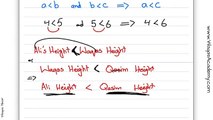 a<b and b<c => a<c
4<5 and 5<6 => 4<6
Ali's Height < Waqas Height
=> Waqas Height < Qasim Height
Ali Height < Qasim Height